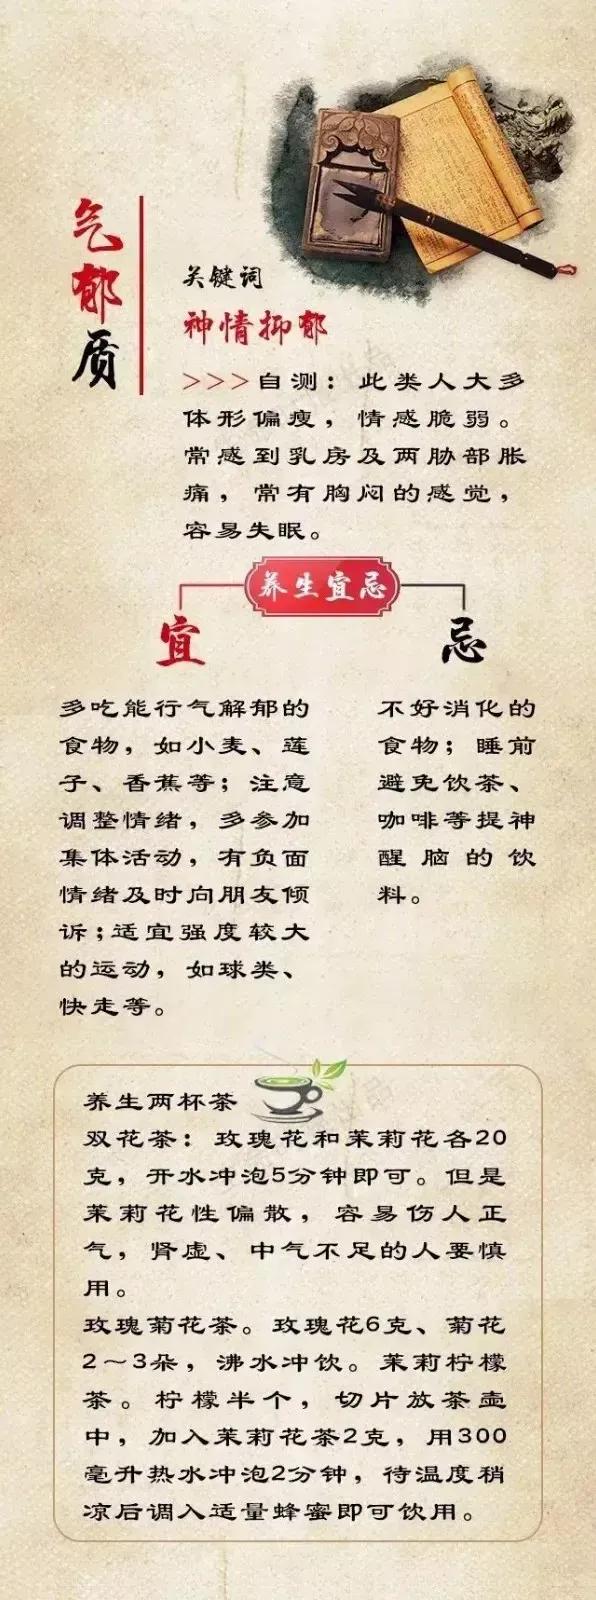 气郁质
关键词
神情抑郁
>>>自测：此类人大多
体形偏瘦，情感脆弱。
常感到乳房及两胁部胀
痛，常有胸闷的感觉，
容易失眠。
养生宜忌
宜
多吃能行气解郁的
食物，如小麦、莲
子、香蕉等；注意
调整情绪，多参加
集体活动，有负面
情绪及时向朋友倾
诉；适宜强度较大
的运动，如球类、
快走等。
忌
不好消化的
食物；睡前
避免饮茶、
咖啡等提神
醒脑的饮
料。
养生两杯茶
双花茶：玫瑰花和茉莉花各20
克，开水冲泡5分钟即可。但是
茉莉花性偏散，容易伤人正
气，肾虚、中气不足的人要慎
用。
玫瑰菊花茶。玫瑰花6克、菊花
2～3朵，沸水冲饮。茉莉柠檬
茶。柠檬半个，切片放茶壶
中，加入茉莉花茶2克，用300
毫升热水冲泡2分钟，待温度稍
凉后调入适量蜂蜜即可饮用。